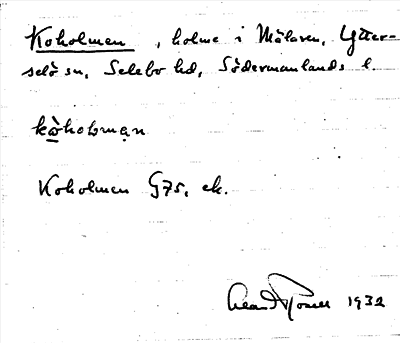 Koholmen, holme i Mälaren, Ytter-
selö sn, Selebo hd, Södermanlands l.
kòholmęn
Koholmen G75, ek.
1932